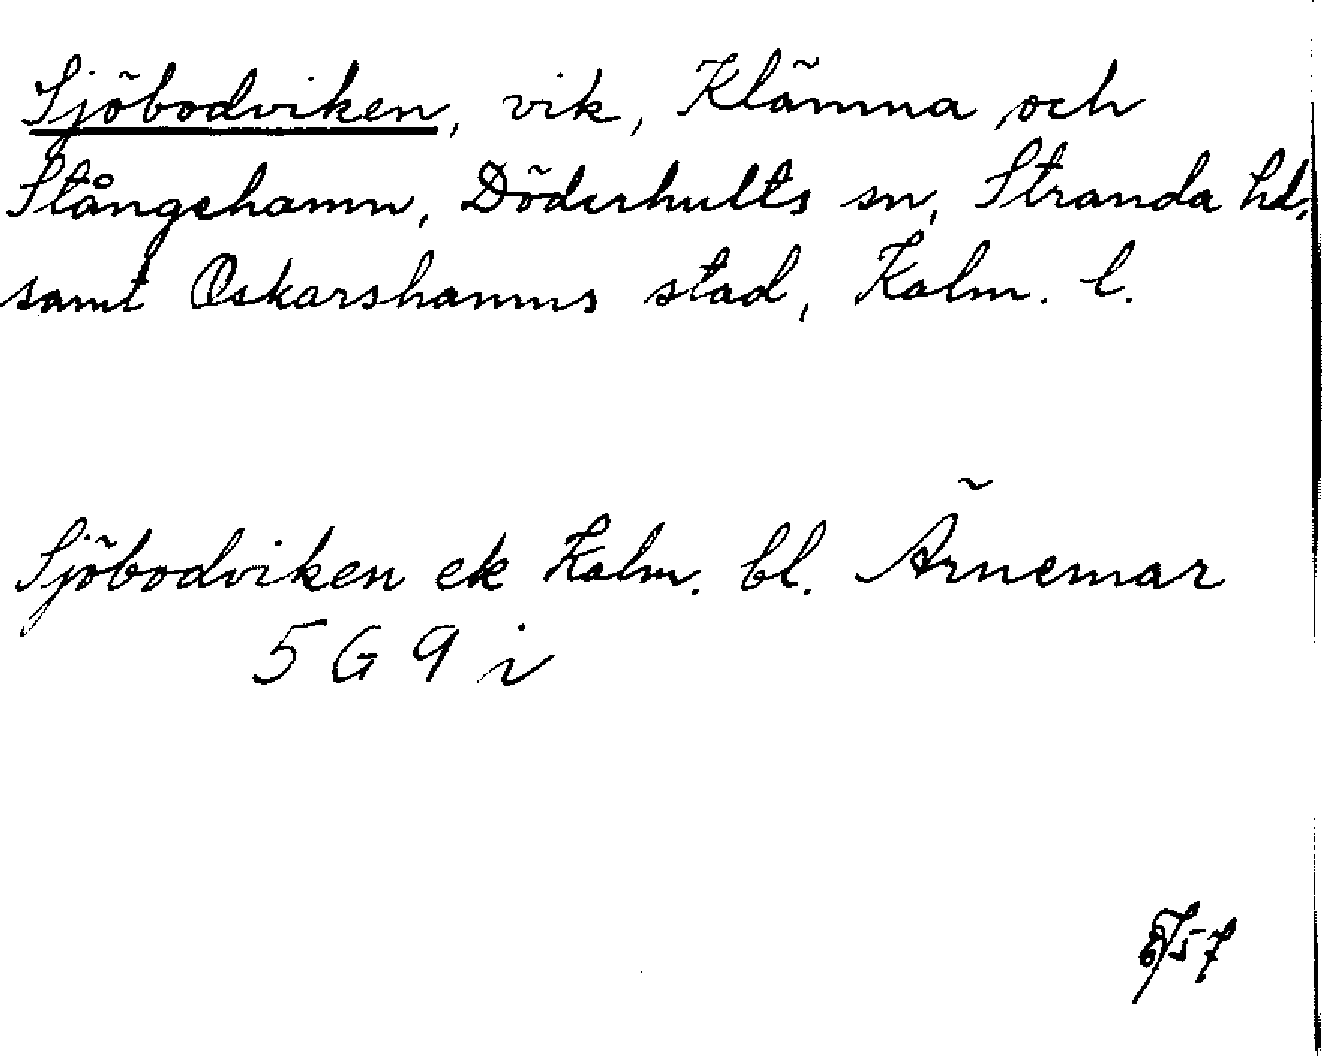 Sjöbodviken, vik, Klämna och
Stångehamn, Döderhults sn, Stranda hd,
samt Oskarshamns stad, Kalm. l.
Sjöbodviken ek Kalm. bl. Ärnemar
5 G 9 i